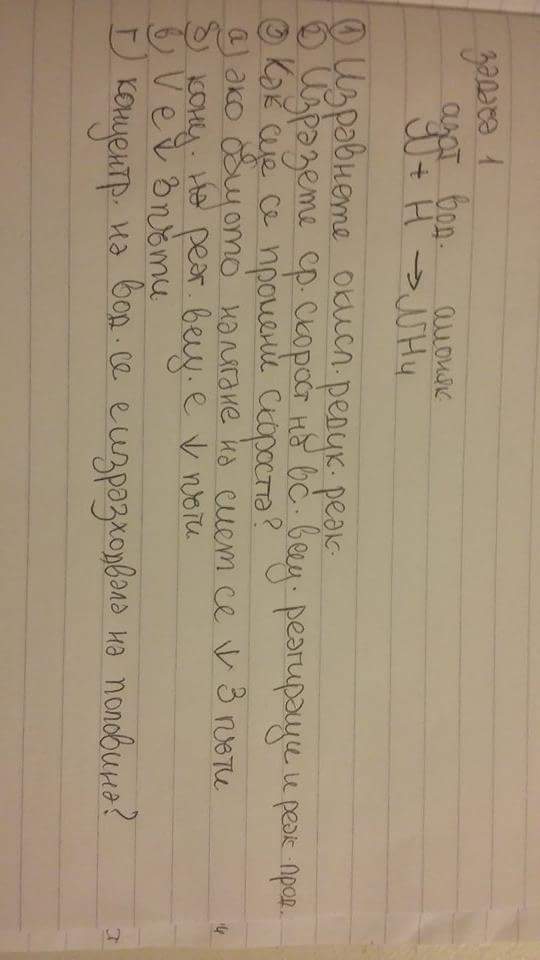 задача 1
азот вод. амоняк
N + H → NH4
① Изравнете окисл. редук. реак.
② Изразете ср. скорост на вс. вещ. реагиращи и реак. прод.
③ Как ще се промени скоростта?
а) ако общото налягане на смет се ↓ 3 пъти
б) конц. на реаг. вещ. е ↓ 4 пъти
в) V е ↓ 3 пъти
г) концентр. на вод. се е изразходвала на половина?